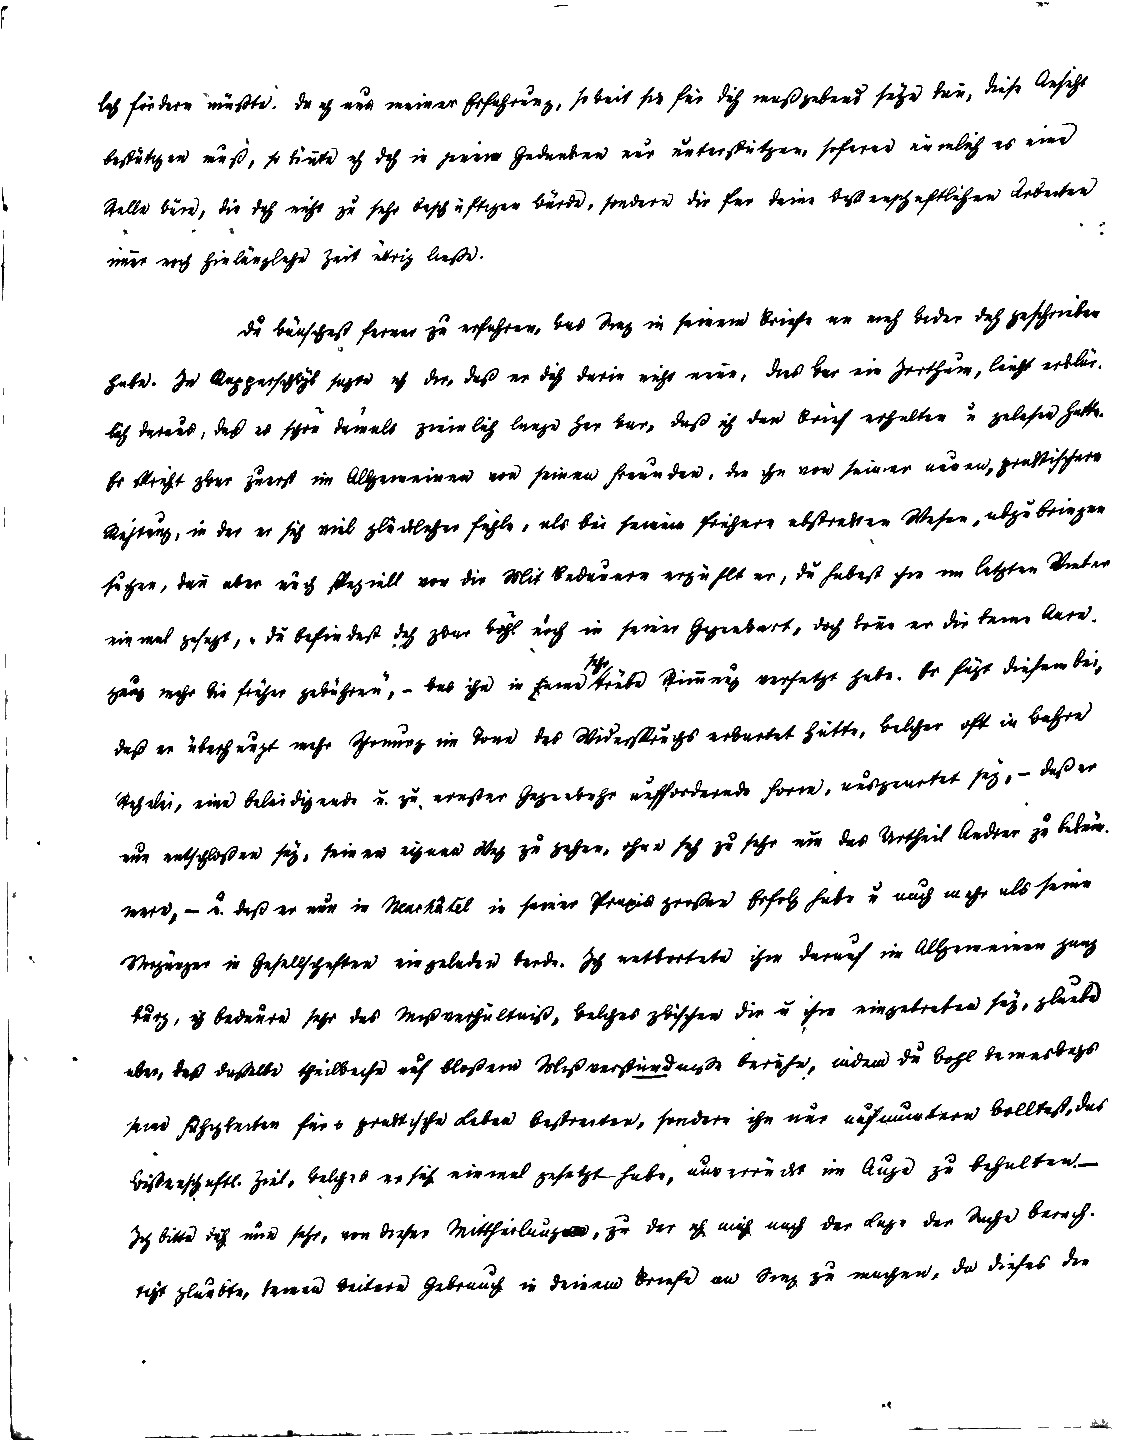 lich fördern müßte. Da ich aus meiner Erfahrung, soweit sie für dich maßgebend seyn kañ, diese Ansicht
bestätigen muß, so köñte ich dich in jenem Gedanken nur unterstützen, sofern nämlich es eine
Stelle wäre, die dich nicht zu sehr beschäftigen würde, sondern die für deine wissenschaftlichen Arbeiten
im̃er noch hinlängliche Zeit übrig ließe.
Du wünschest ferner zu erfahren, was in seinem Briefe an mich wider dich geschrieben
habe. In Rapperschwyl sagte ich dir, daß er dich darin nicht neñe, dies war ein Irrthum, leicht erklär-
lich daraus, daß es schon damals ziemlich lange her war, daß ich den Brief erhalten u gelesen hatte.
Er spricht zwar zuerst im Allgemeinen von seinen Freunden, die ihn von seiner neuen, praktischern
Richtung, in der er sich viel glücklicher fühle, als bei seinem frühern abstrakten Wesen, abzubringen
suchen, dañ aber auch speziell von dir. Mit Bedauern erzählt er, du habest ihm im letzten Winter
einmal gesagt, „du befindest dich zwar wohl noch in seiner Gegenwart, doch köñe er dir keine Anre-
gung mehr wie früher gewähren“, – was ihn in eine sehr trübe Stim̃ung versetzt habe. Er fügt diesem bei,
daß er überhaupt mehr Schonung im Tone des Widerspruchs erwartet hätte, welcher oft in wahre
eine beleidigende u. zu ernster Gegenwehr auffordernde Form, ausgeartet sey, – daß er
nun entschlossen sey, seinen eignen Weg zu gehen, ohne sich zu sehr um das Urtheil Andrer zu beküm̃-
mern, – u. daß er nun in in seiner Praxis großen Erfolg habe u noch mehr als seine
Vorgänger in Gesellschaften eingeladen werde. Ich antwortete ihm darauf im Allgemeinen ganz
kurz, ich bedaure sehr das Mißverhältniß, welches zwischen dir u ihm eingetreten sey, glaube
aber, daß dasselbe theilweise auf bloßem Mißverständnisse beruhe, indem du wohl keineswegs
seine Fähigkeiten für's praktische Leben bestreiten, sondern ihn nur aufmuntern wolltest, das
wissenschaftl. Ziel, welches er sich einmal gesetzt habe, unverrückt im Auge zu behalten. –
Ich bitte dich nun sehr, von dieser Mittheilung, zu der ich mich nach der Lage der Sache berech-
tigt glaubte, keinen weitern Gebrauch in deinem Briefe an zu machen, da dieses die